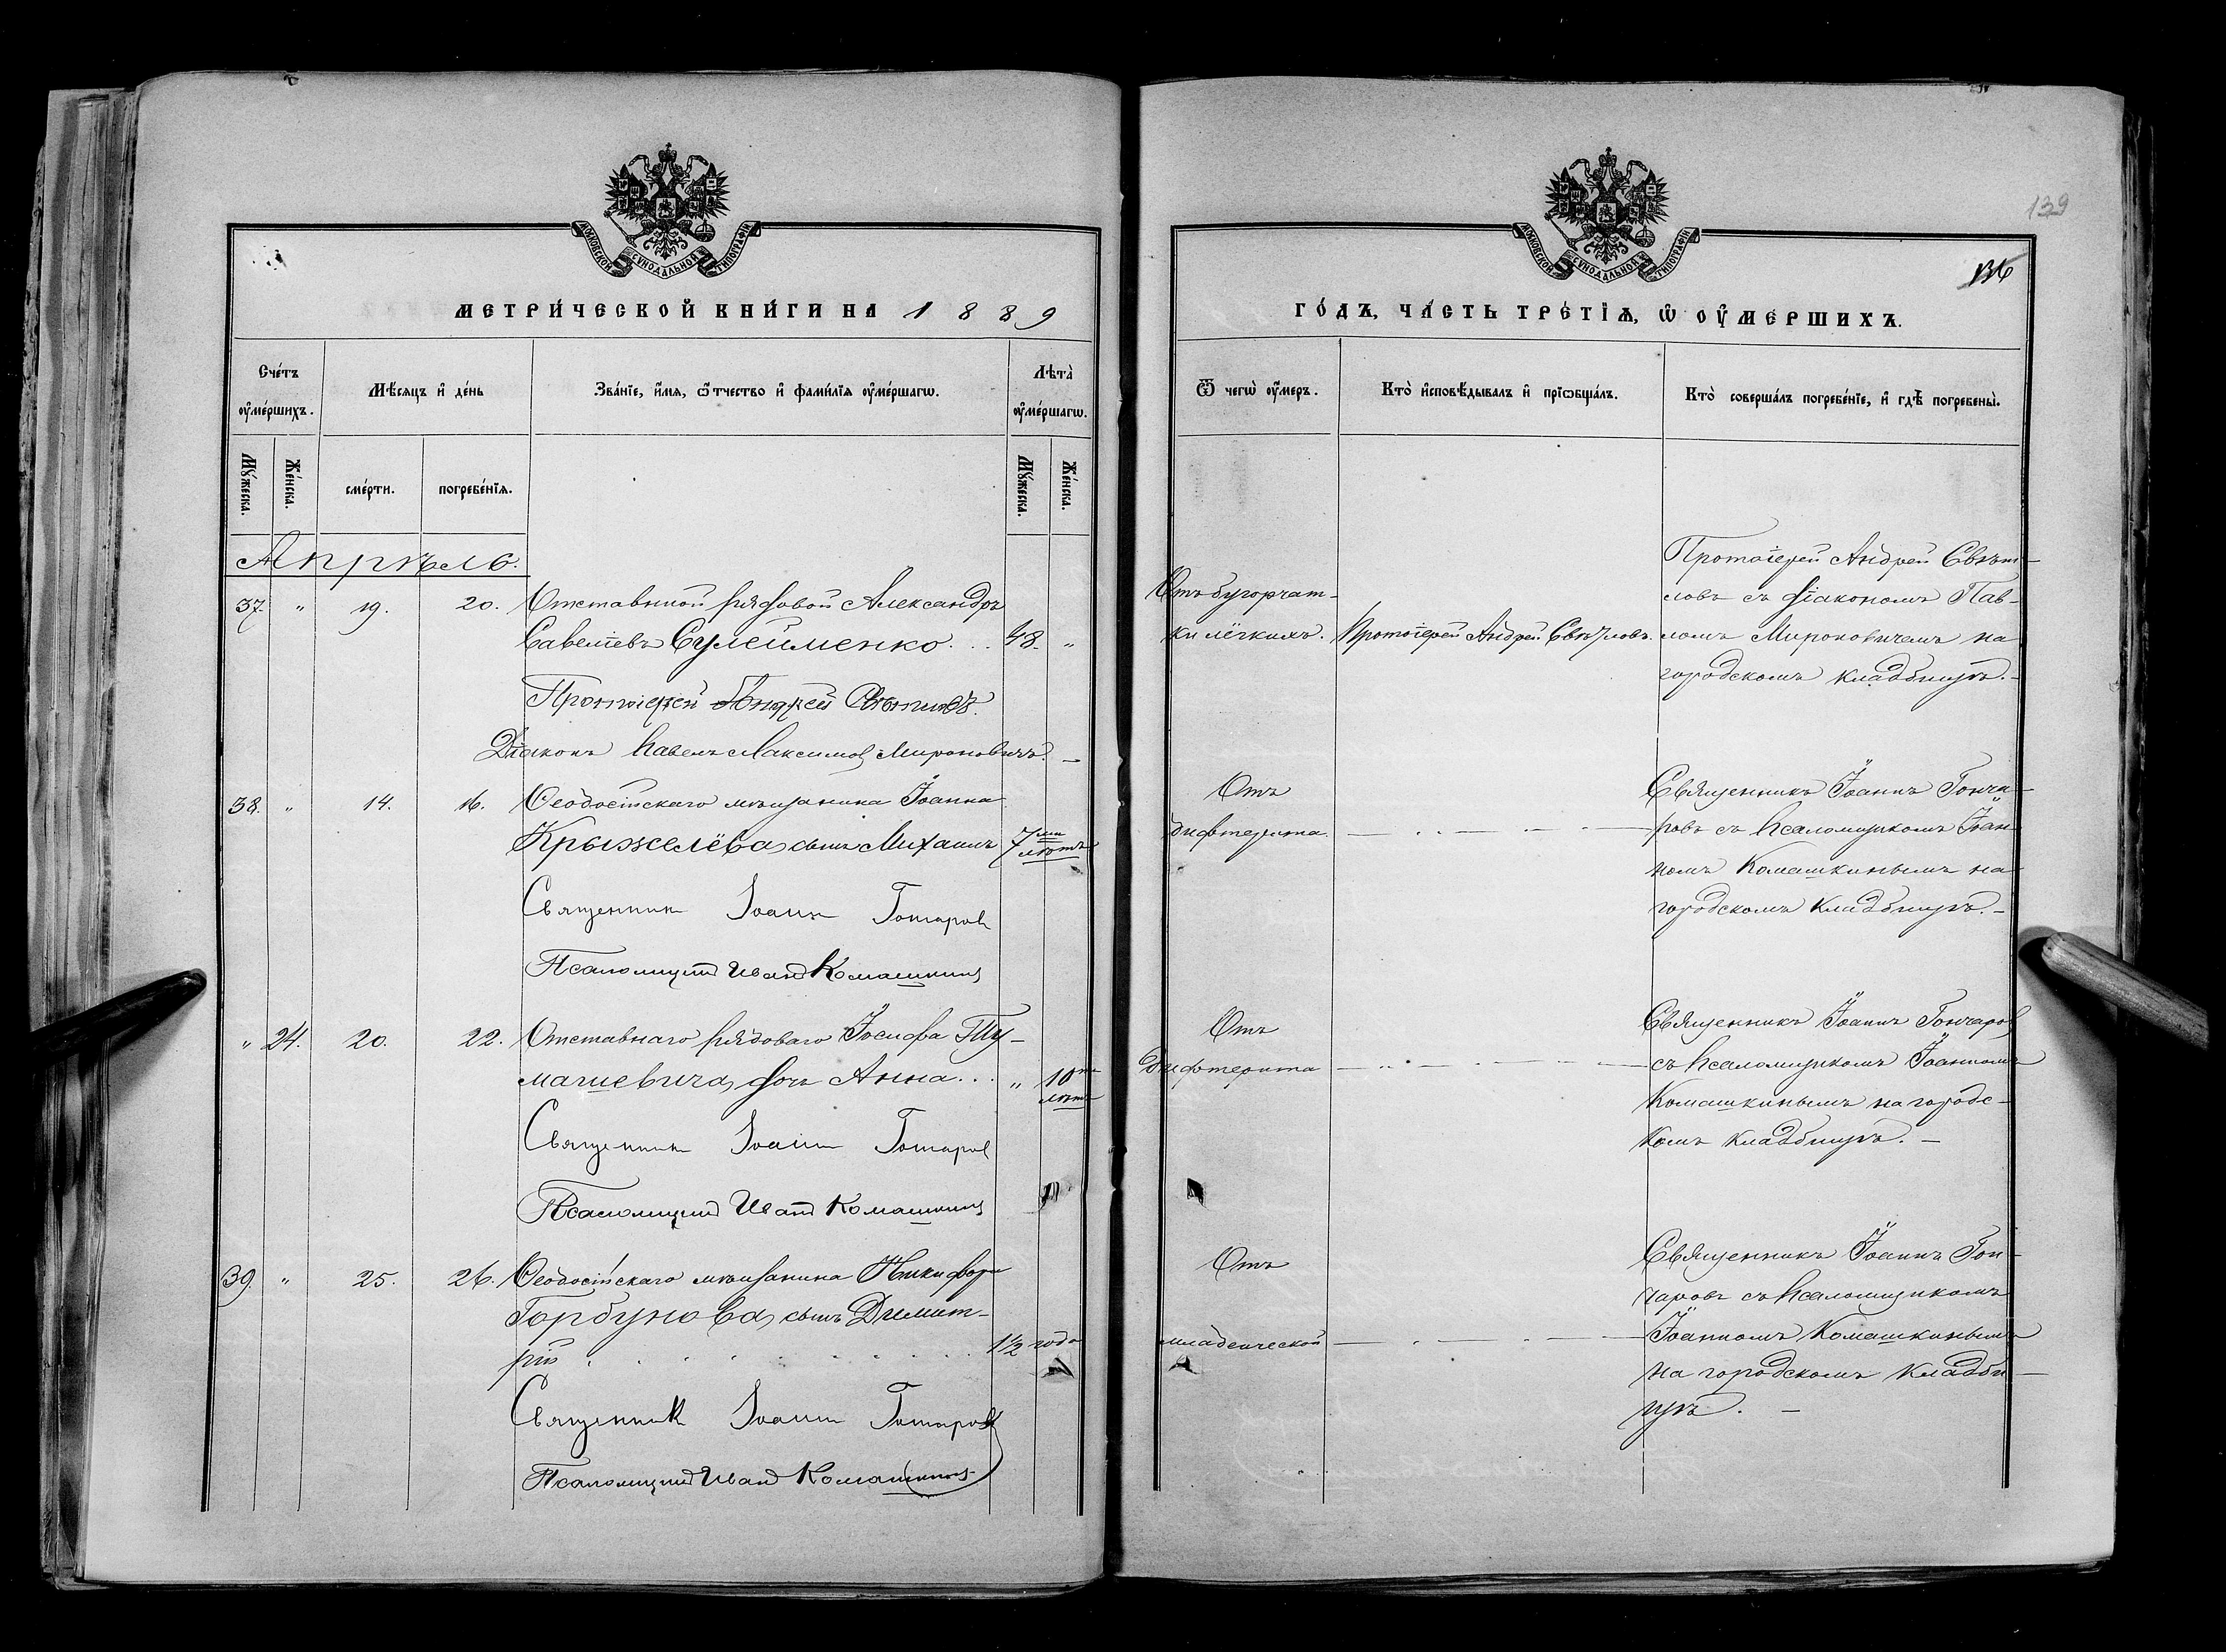 МОСКОВСКОЙ СУНОДАЛЬНОЙ ТИПОГРАФІИ
МЕТРИ́ЧЕСКОЙ КНИ́ГИ НА 1889
Сче́тъ ᲂу҆ме́ршихъ.
Мѣ́сяцъ и҆ де́нь
Зва́нїе, и҆́мя, ѻ҆́тчество и҆ фами́лїя ᲂу҆ме́ршагѡ.
Лѣта̀ ᲂу҆ме́ршагѡ.
Мꙋ́жеска.
Же́нска.
сме́рти.
погребе́нїѧ.
Мꙋ́жеска.
Же́нска.
Апрѣль.
37. " 19. 20. Отставной рядовой Александръ
Савельевъ Сулейменко . . . 48. "
Протоіерей Андрей Свѣтловъ.
Діаконъ Павелъ Максимов Мироновичъ. –
38. " 14. 16. Ѳеодосійскаго мѣщанина Іоанна
Крыжелёва сынъ Михаилъ 7ми лѣтъ
Священникъ Іоаннъ Гончаровъ
Псаломщикъ Иванъ Комашкинъ
" 24. 20. 22. Отставнаго рядоваго Іосифа Ту-
машевича дочь Анна . . . " 10ти лѣтъ
Священникъ Іоаннъ Гончаровъ
Псаломщикъ Иванъ Комашкинъ
39. " 25. 26. Ѳеодосійскаго мѣщанина Никифора
Горбунова сынъ Димит-
рій . . . . . . . . . . 1½ года
Священникъ Іоаннъ Гончаровъ
Псаломщикъ Иванъ Комашкинъ
139
136
МОСКОВСКОЙ СУНОДАЛЬНОЙ ТИПОГРАФІИ
ГО́ДЪ, ЧА́СТЬ ТРЕ́ТІѦ, Ѡ҆ ОУ҆МЕ́РШИХЪ.
Ѿ чегѡ̀ ᲂу҆́меръ.
Кто̀ и҆сповѣ́дывалъ и҆ прїѡбща́лъ.
Кто̀ соверша́лъ погребе́нїе, и҆ гдѣ̀ погребены̀.
Отъ бугорчат-
ки лёгкихъ.
Протоіерей Андрей Свѣтловъ.
Протоіерей Андрей Свѣт-
ловъ съ діакономъ Пав-
ломъ Мироновичемъ на
городскомъ кладбищѣ. –
Отъ
дифтерита.
Священникъ Іоаннъ Гонча-
ровъ съ псаломщикомъ Іоан-
номъ Комашкинымъ на
городскомъ кладбищѣ. –
Отъ
дифтерита
Священникъ Іоаннъ Гончаров
съ псаломщикомъ Іоанномъ
Комашкинымъ на городс-
комъ кладбищѣ. –
Отъ
младенческой
Священникъ Іоаннъ Гон-
чаровъ съ псаломщикомъ
Іоанномъ Комашкинымъ
на городскомъ кладби-
щѣ. –